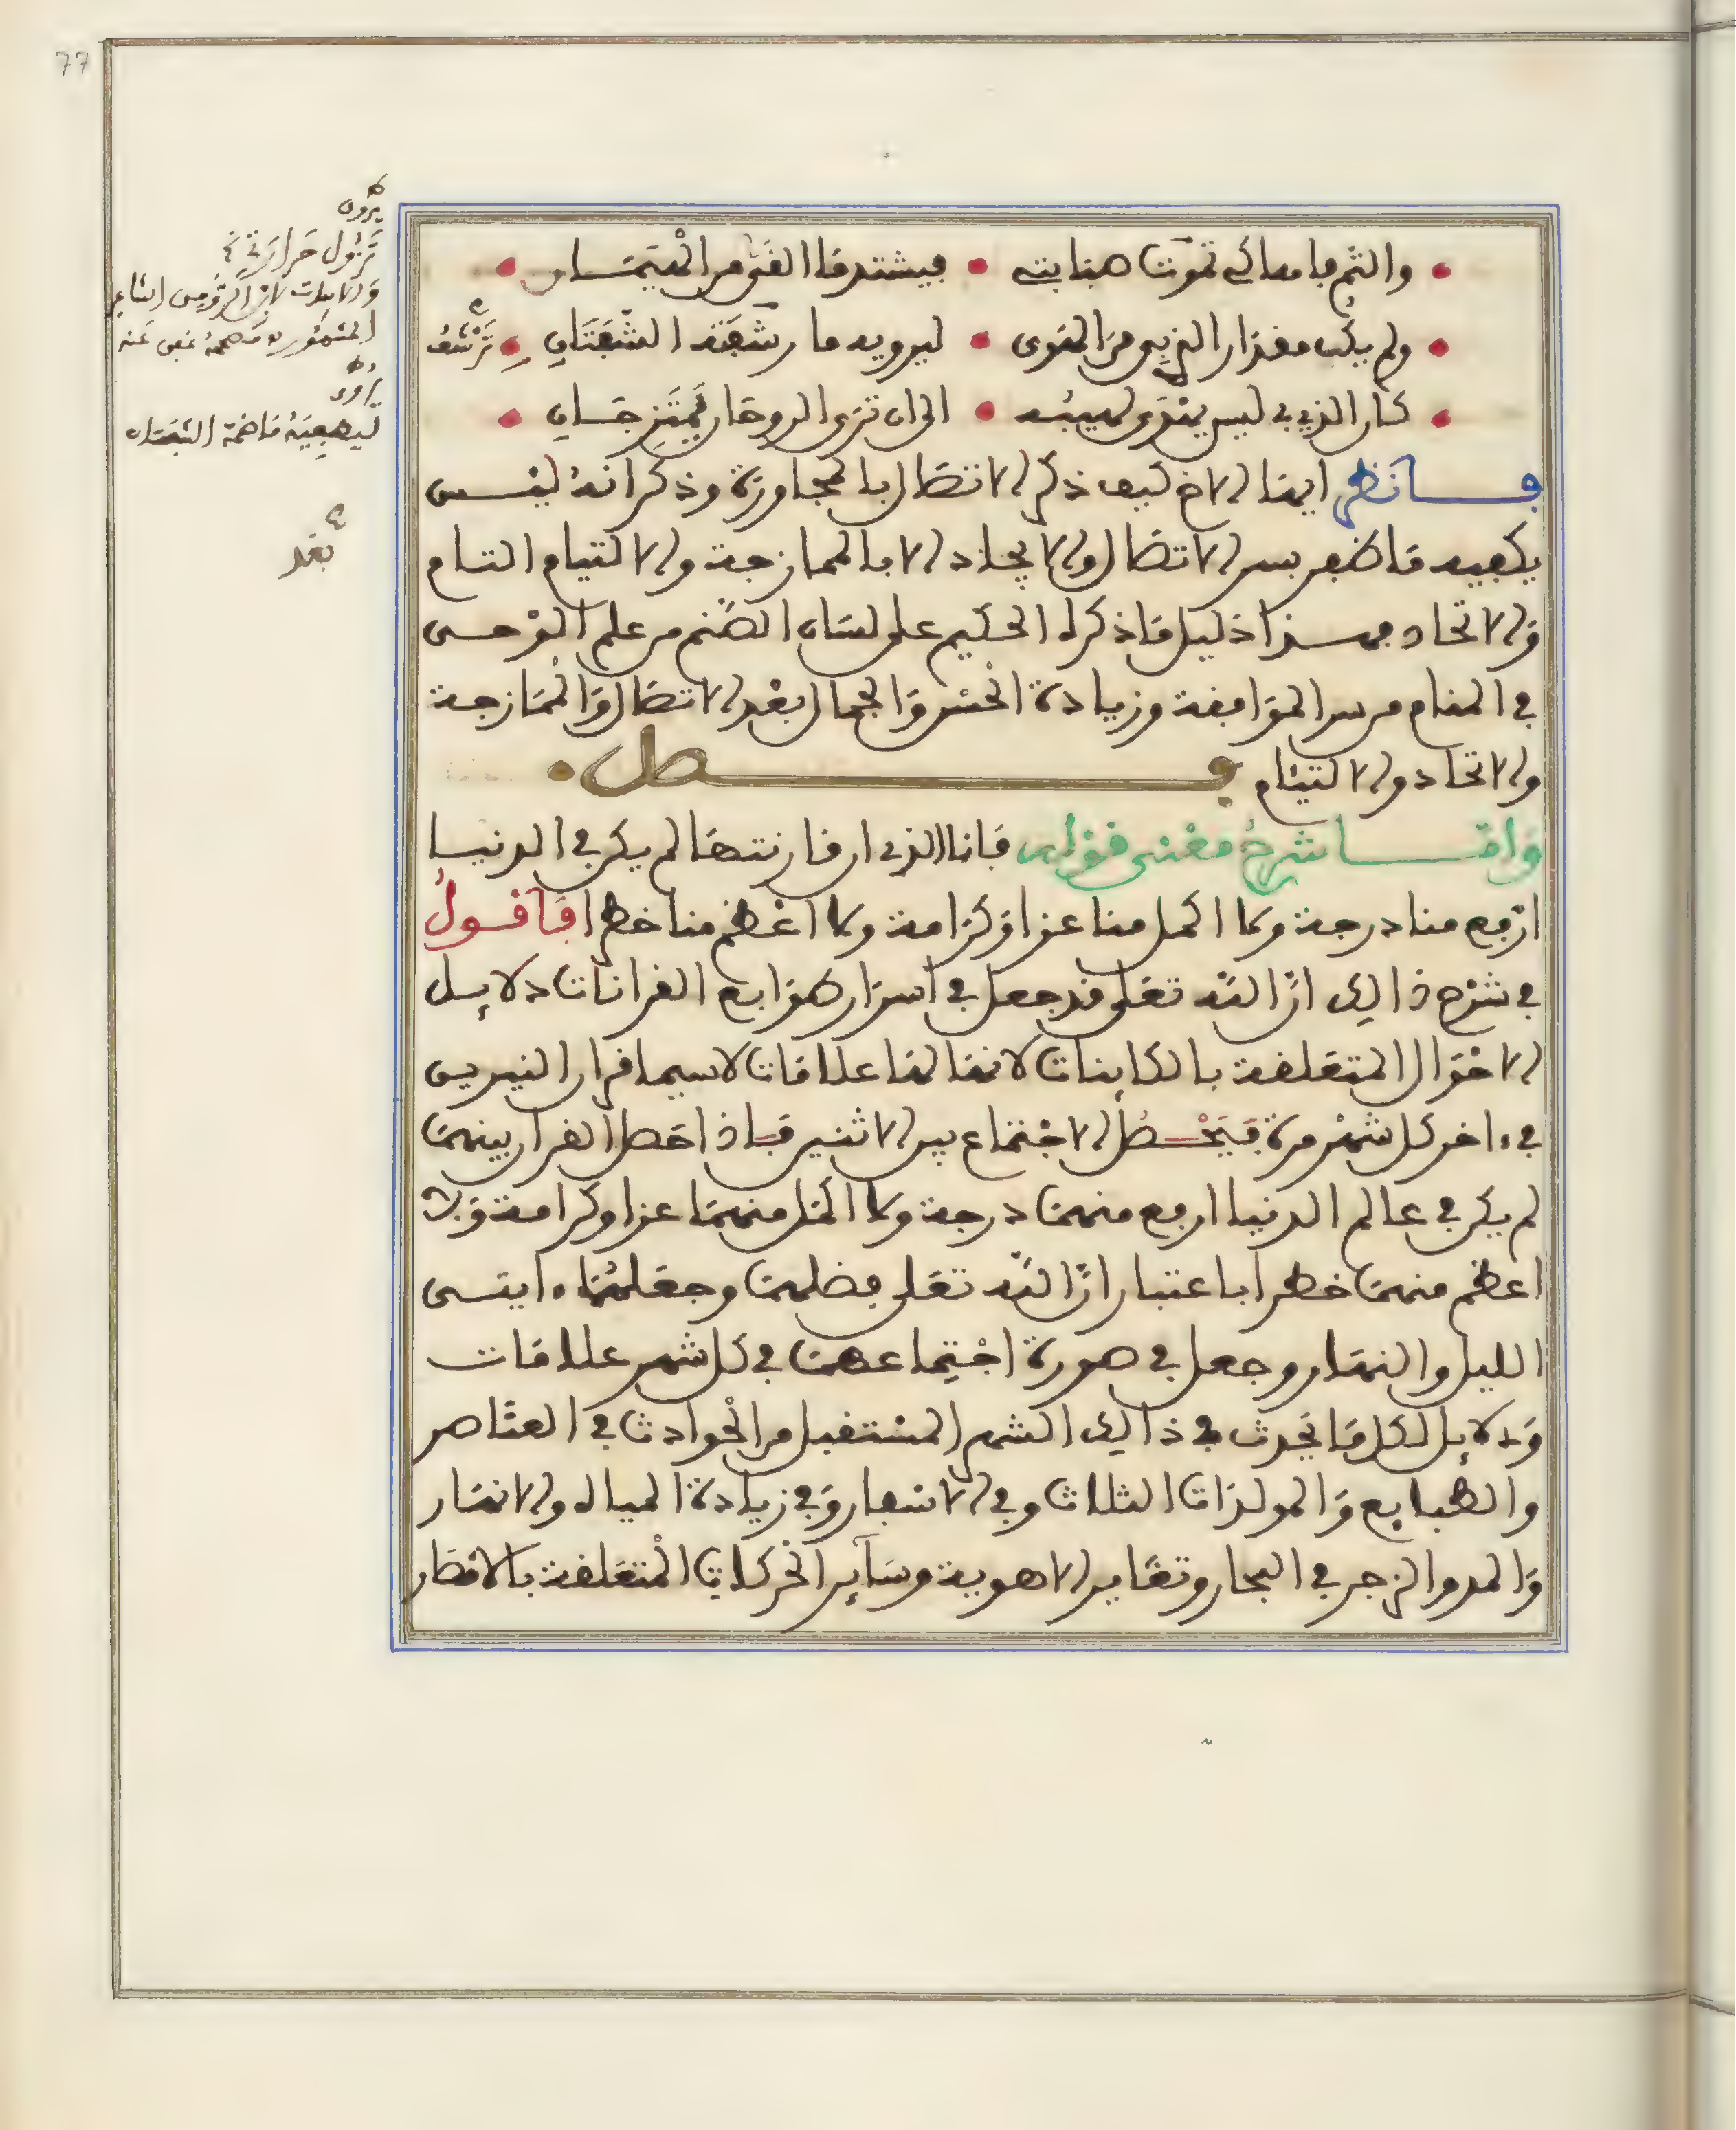 77
والثم فاها كي تموت صبابتي • فيشتد ما القى من الهيمان •
ولم يك مقدار الذي بي من الهوى • ليرويه ما رشفته الشفتان • ترشف
كان الذي بي ليس يهدى لهيبه • الى ان ترى الروحان يمتزجان •
فانظر ايها الاخ كيف ذكر الاتصال بالمجاورة وذكر انه ليس
يكفيه ما ظهر بسر الاتصال والايجاد الا بالممازجة والالتيام التام
والاتحاد فهذا دليل ما ذكره الحكيم على لسان الصنم من علم الوحي
في المنام من سر الموافقة وزيادة الحسن والجمال بعد الاتصال والممازجة
والاتحاد والالتيام فصل •
واما شرح معنى قوله فانا الذي ان قارنتها لم يكن في الدنيا
ارفع منا درجة ولا اكمل منا عزا وكرامة ولا اعظم منا خطرا فاقول
في شرح ذالك ان الله تعلى قد جعل في اسرار طوابع القرانات دلايل
الاحوال المتعلقة بالكاينات لانها لها علامات لاسيما قران النيرين
في ءاخر كل شهر مرة فيحصل الاجتماع بين الاثنين فاذا حصل القران بينهما
لم يكن في عالم الدنيا ارفع منهما درجة ولا اكمل منهما عزا وكرامة ولا
اعظم منهما خطرا باعتبار ان الله تعلى فضلهما وجعلهما ءايتى
الليل والنهار وجعل في صورة اجتماعهما في كل شهر علامات
ودلايل لكل ما يحدث في ذالك الشهر المستقبل من الحوادث في العناصر
والطبايع والمولدات الثلاث وفي الاشجار وفي زيادة المياه والانهار
والمد والزجر في البحار وتغاير الاهوية وساير الحركات المتعلقة بالاقطار
يروى
تزول حرارتي
والابيات لابن الرومي الشاعر
المشهور
يروى
ليشفيه ما ضمت الشفتان
بعد